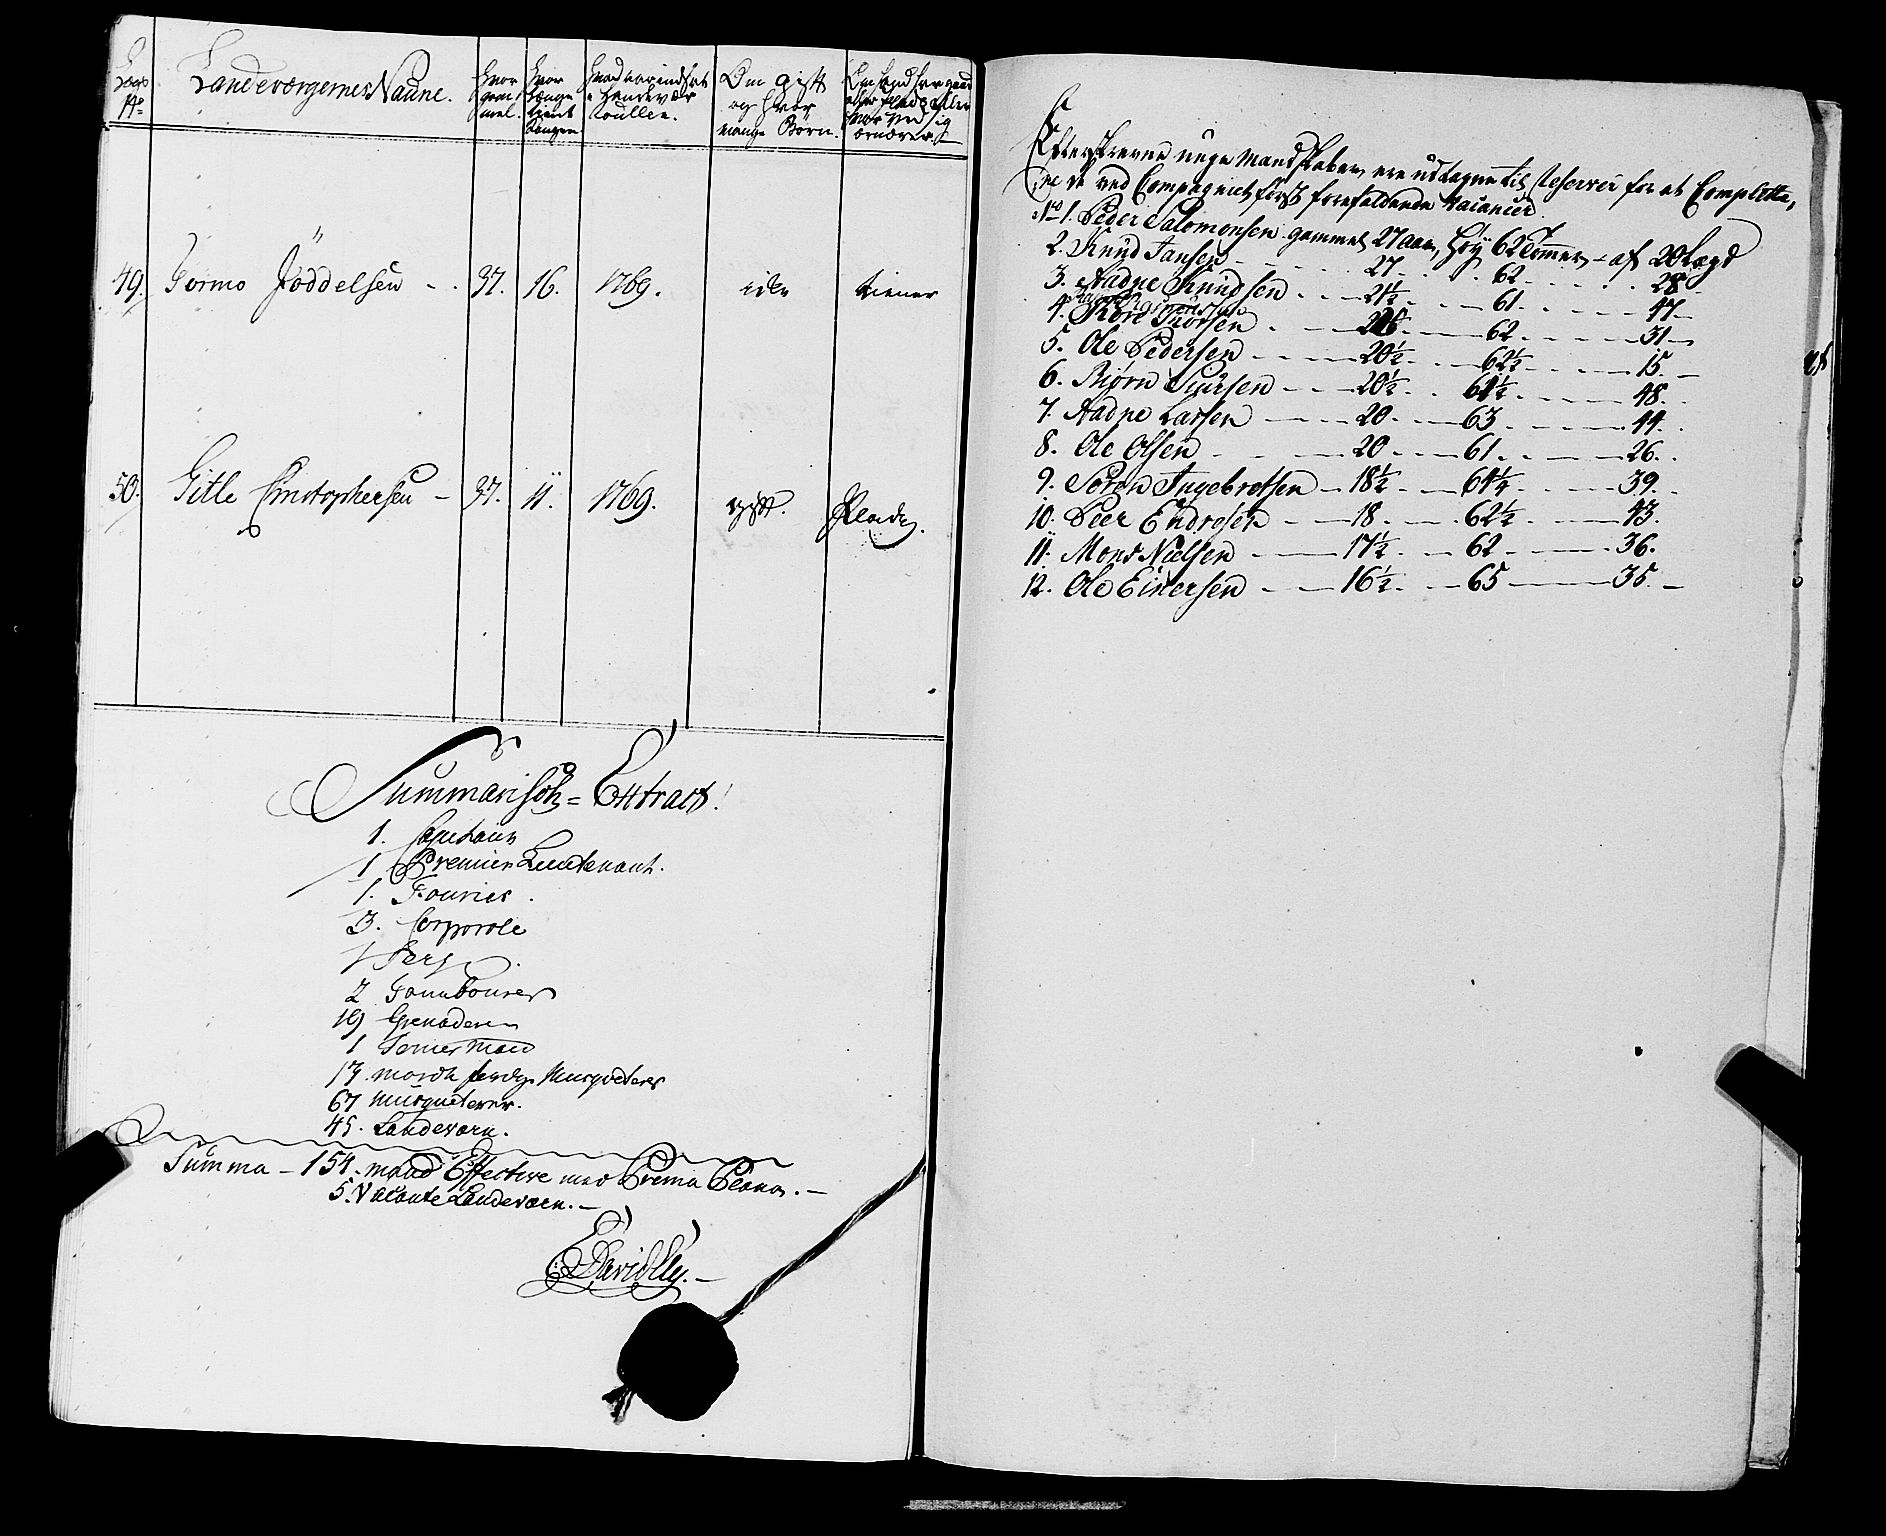 Legd No Landeværgernes Nafne. Hvor gam̄mel. Hvor Længe tient Kongen Hvad aar indsat i Landevær Roullen. Om gift og hvor mange Børn. Om hand har gaard eller Plads eller hvor ved sig ernærer.
49. Tormo Jøddelsen - . 37. 16. 1769. ikke tiener
50. Gitle Christophersen - 37. 11. 1769. gift. Plads.
Summarisch = Extract!
1. Capitain
1 Premier Lieutenant.
1. Fourier.
3. Corporale
1 Serg.
2 Tambourer
19 Grenaderer
1 Tømmermand
17. marchferdge Musqveterer
67 Musqueterer.
45. Landeværn.
Summa - 154. mand Effective med Prema Plana. -
5. Vacante Landeværn. -
Efterskrevne unge Mandskaber, ere udtagne til Reserver for at Complette,
re de ved Compagniet først forefaldende Vacancer.
No 1. Peder Salomonsen gammel 27 aar, Høy 62 Tommer - af 20 Lægd
2. Knud Jansen - 27 - 62 - 28
3. Aadne Knudsen - 21½ - 61 - 47
4. Kore Thorsen - 62 - 31
5. Ole Pedersen - 20½ - 62½ - 15. -
6. Biørn Siursen - 20½ - 61½ - 48.
7. Aadne Larsen - 20 - 63 - 44.
8. Ole Olsen - 20 - 61. - 26.
9. Søren Ingebretsen - 18½ - 61¼ - 39.
10. Peer Endresen - 18 - 62½ - 43.
11. Mons Nielsen - 17½ - 62 - 36.
12. Ole Einersen - 16½ - 65 - 35. -